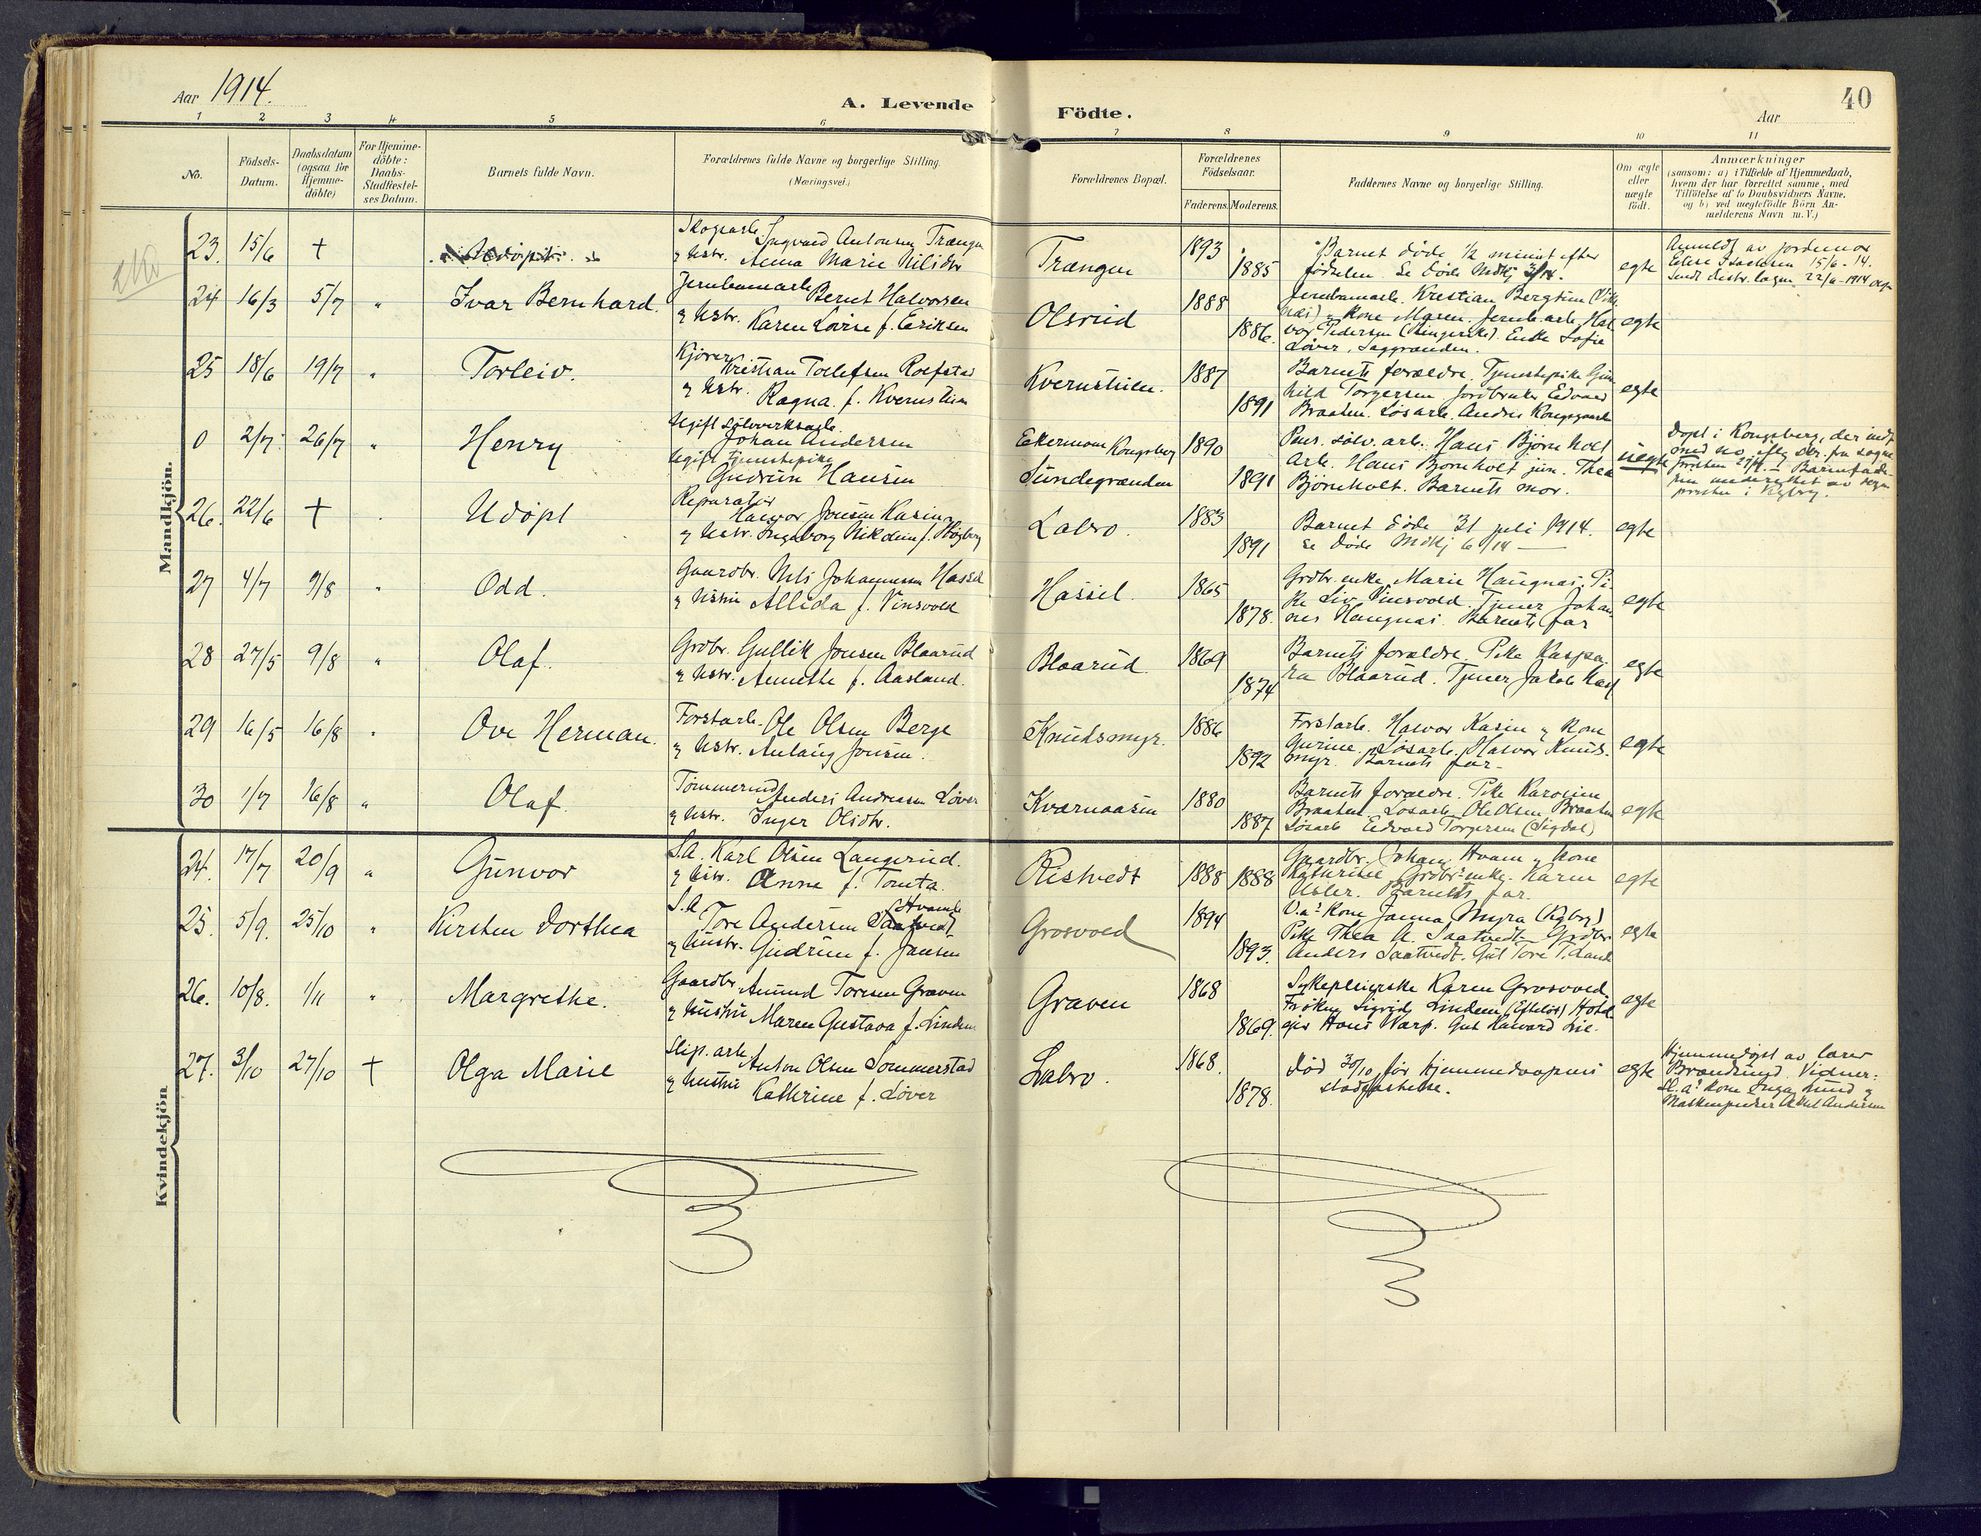 Aar 1914.
A. Levende
Födte.
Aar
40
1 2 3 4 5 6 7 8 9 10 11
No.
Födsels-
Datum.
Daabsdatum
(ogsaa for
Hjemme-
döbte)
For Hjemme-
döbte:
Daabs-
Stadfæstel-
ses Datum.
Barnets fulde Navn.
Forældrenes fulde Navne og borgerlige Stilling.
(Næringsvei.)
Forældrenes Bopæl.
Forældrenes
Födselsaar.
Faderens. Moderens.
Faddernes Navne og borgerlige Stilling.
Om ægte
eller
uægte
födt.
Anmærkninger
(saasom: a) i Tilfælde af Hjemmedaab,
hvem der har forrettet samme, med
Tilföielse af to Daabsvidners Navne,
og b) ved uægtefödte Börn An-
melderens Navn m. V.)
Mandkjön.
23. 15/6 + Udöpt
Skogsarb. Ingvald Antonsen Trængen
og hstr. Anna Marie Nilsdtr
Trængen
1893
1885
Barnet døde 1/2 minut efter
fødselen. Se døde Mdkj 3/14.
egte
Anmeldt av jordemor
15/6 - 14.
Sendt distr. lægen 22/6 - 1914
24 16/3 5/7 " Ivar Bernhard.
Jernbanearb. Bernt Halvorsen
og hstr. Karen Lovise f. Eriksen
Olsrud
1888
1886.
Jernbanearb. Kristian Bergsun
og kone Maren. Jernb. arb. Hal
vor Pedersen (Ringerike). Enke Sofie
Løver, Saggrænden.
egte
25 18/6 19/7 " Torleiv.
Kjører Kristian Tollefsen Rolfstad
og hstr. Ragna f. Kvernstuen
Kvernstuen.
1887
1891
Barnets forældre. Tjenestepike Gun
hild Torgersen, Jordbruker Edvard
Braaten. Løsarb. Andres Kongsgaard
egte
0 2/7. 26/7 " Henry
Ugift sølvverksarb.
Johan Andersen
Ugift tjenestepike
Gudrun Hansen
Eekermoen Kongsberg
Sundegrænden
1890
1891
Pens. sølv. arb. Hans Bjørnholt
Arb. Hans Bjørnholt jun. Thea
Bjørnholt. Barnets mor.
uegte
Døpt i Kongsberg, der indf.
26. 22/6 + . Udøpt
Reparatør
Halvor Jonsen Kasin
og hstr. Ingeborg Nikoline f. Støgberg
Labro.
1883
1891
Barnet døde 31 juli 1914.
se døde Mdkj 6/14
egte
27 4/7 9/8 " Odd.
Gaardbr. Nils Johannesen Hassel
og hstru Allida f. Vinsvold
Hassel.
1865
1878.
Grdbr. enke Marie Haugnæs. Pi
ke Liv Vinsvold. Tjener Johan
nes Haugnæs. Barnets far
egte
28 27/5 9/8 " Olaf.
Grdbr. Gullik Jonsen Blaarud
og hstr. Annette f. Aasland.
Blaarud.
1869
1874
Barnets forældre. Pike Kaspa
ra Blaarud. Tjener Jakob
egte
29 16/5 16/8 " Ove Herman.
Forstarb. Ole Olsen Berge
og hstr. Anlaug Jonsen.
Knudsmyr.
1886
1892
Forstarb. Halvor Kasin og kone
Gurine. Løsarb. Halvor Knuds-
myr. Barnets far.
egte
30 1/7 16/8 " Olaf.
Tømmermd Anders Andreasen Løver
og hstr. Inger Olsdtr.
Kvarnaasen
1880
1887
Barnets forældre. Pike Karoline
Braaten. Løsarb. Ole Olsen Braaten
Løsarb. Edvard Torgersen (Sigdal)
egte
Kvindekjön.
24. 17/7 20/9 " Gunvor
S.A. Karl Olsen Langerud.
og hstr. Anne f. Tomta.
Ristvedt
1888 1888
Gaardbr. Johan Hvam og kone
Kathrine. Grdbr. enke Karen
Barnets far.
egte
25. 5/9. 25/10 " Kirsten Dorthea
S.A. Tore Andersen Saatvedt
og hustr. Gudrun f. Jansen
Grosvold
1894
1893.
U.a? kone Janna Myra
Pike Thea A. Saatvedt. Grdbr.
Anders Saatvedt. Gut Tore T.
egte
26. 10/8. 1/11 " Margrethe.
Gaardbr. Amund Toresen Graven
og hustru Maren Gustava f. Lindem
Graven
1868
1869.
Sykepleierske Karen Grosvold
Frøken Sigrid Lindem (Efteløt) Hotel
eier Hans Warp. Gut Halvard Lie.
egte
27. 3/10 27/10 + Olga Marie
Slip. arb. Anton Olsen Sommerstad
og hustru Kathrine f. Løver
Labro.
1868.
1878.
Død 30/10 før Hjemmedaapens
stadfæstelse.
egte
Hjemmedøpt av lærer
Brændsrud. Vidner:
Sl. a? kone Inga Lund og
Maskinpudser Aksel Andersen